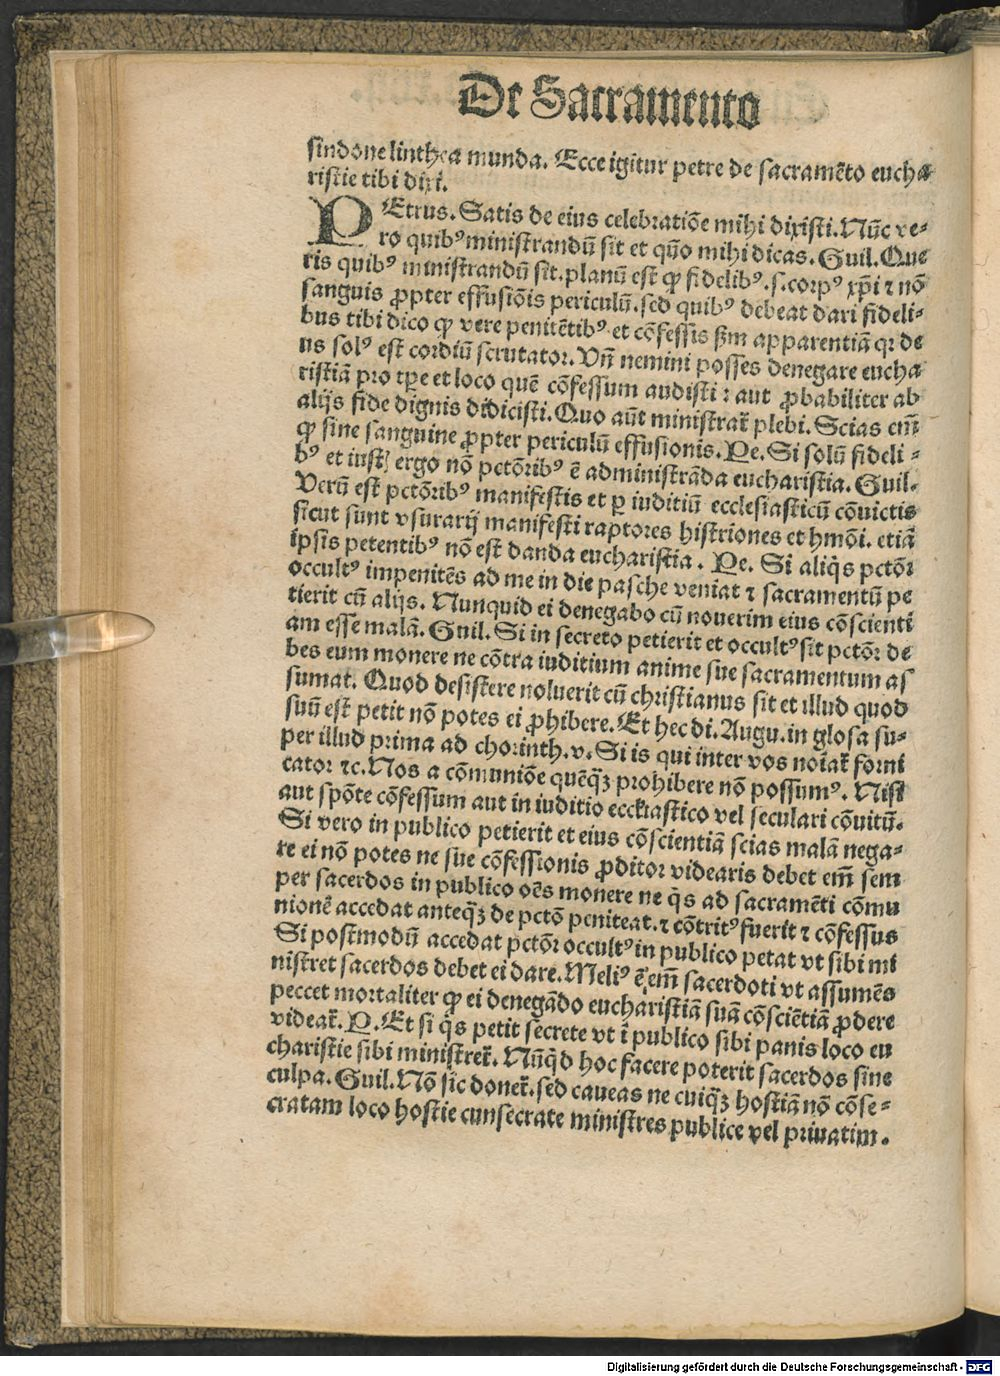 De Sacramento
sindone linthea munda. Ecce igitur petre de sacramēto eucha
ristie tibi dixi.
PEtrus. Satis de eius celebratiōe mihi dixisti. Nūc ve-
ro quibꝰ ministrandū sit et quō mihi dicas. Guil. Que
ris quibꝰ ministrandū sit. planū est ꝙ fidelibꝰ. s. corpꝰ xp̄i ⁊ nō
sanguis ꝓpter effusiōis periculū. sed quibꝰ debeat dari fideli-
bus tibi dico ꝙ vere penitētibꝰ et cōfessis ẜm apparentiā qꝛ de
us solꝰ est cordiū scrutator. Vn̄ nemini posses denegare eucha
ristiā pro tꝑe et loco quē cōfessum audisti : aut ꝓbabiliter ab
alijs fide dignis didicisti. Quo aūt ministrat̄ plebi. Scias em̄
ꝙ sine sanguine ꝓpter periculū effusionis. Pe. Si solū fideli-
bꝰ et iust ergo nō pctōribꝰ ē administrāda eucharistia. Guil.
Verū est pctōribꝰ manifestis et ꝑ iuditiū ecclesiasticū cōuictis
sicut sunt vsurarij manifesti raptores histriones et hmōi. etiā
ipsis petentibꝰ nō est danda eucharistia. Pe. Si aliq̄s pctōꝛ
occultꝰ impenitēs ad me in die pasche veniat ⁊ sacramentū pe
tierit cū alijs. Nunquid ei denegabo cū nouerim eius cōscienti
am esse malā. Guil. Si in secreto petierit et occultꝰ sit pctōꝛ de
bes eum monere ne cōtra iuditium anime sue sacramentum as
sumat. Quod desistere noluerit cū christianus sit et illud quod
suū est petit nō potes ei ꝓhibere. Et hec di. Augu. in glosa su-
per illud prima ad chorinth. v. Si is qui inter vos noīat̄ forni
cator ⁊c. Nos a cōmuniōe quēqꝫ prohibere nō possumꝰ. Nisi
aut spōte cōfessum aut in iuditio eccl̄iastico vel seculari cōuitū.
Si vero in publico petierit et eius cōscientiā scias malā nega-
re ei nō potes ne sue cōfessionis ꝓditoꝛ videaris debet em̄ sem
per sacerdos in publico oēs monere ne q̄s ad sacramēti cōmu
nionē accedat anteqꝫ de pctō peniteat. ⁊ cōtritꝰ fuerit ⁊ cōfessus
Si postmodū accedat pctōꝛ occultꝰ in publico petat vt sibi mi
nistret sacerdos debet ei dare. Meliꝰ ē em̄ sacerdoti vt assumēs
peccet mortaliter ꝙ ei denegādo eucharistiā suā cōsciētiā ꝓdere
videat̄. P. Et si q̄s petit secrete vt ī publico sibi panis loco eu
charistie sibi ministret̄. Nūq̄d hoc facere poterit sacerdos sine
culpa. Guil. Nō sic donet̄. sed caueas ne cuiqꝫ hostiā nō cōse-
cratam loco hostie cunsecrate ministres publice vel priuatim.
Digitalisierung gefördert durch die Deutsche Forschungsgemeinschaft - DFG